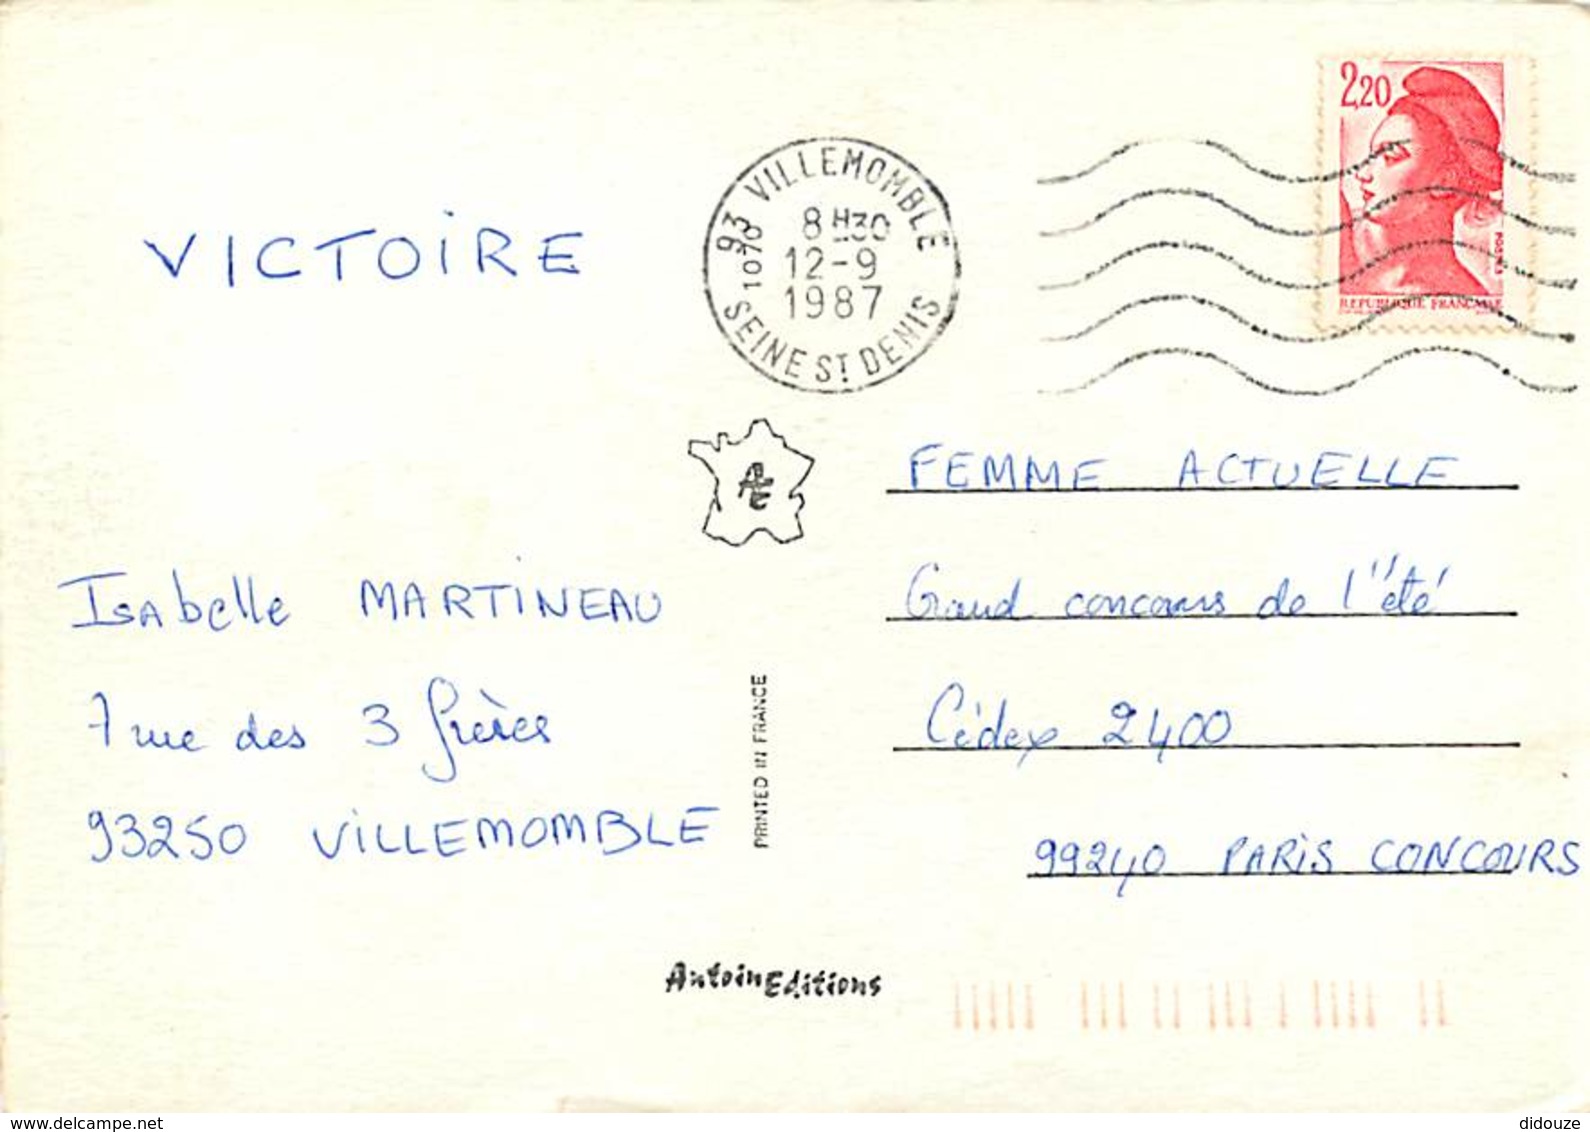 2,20
REPUBLIQUE FRANÇAISE
93 VILLEMOMBLE
1070
8H30
12-9
1987
SEINE ST DENIS
VICTOIRE
AE
FEMME ACTUELLE
Grand concours de l'"été
Cédex 2400
99240 PARIS CONCOURS
Isabelle MARTINEAU
7 rue des 3 frères
93250 VILLEMOMBLE
PRINTED IN FRANCE
AntoinEditions
www.delcampe.net
didouze